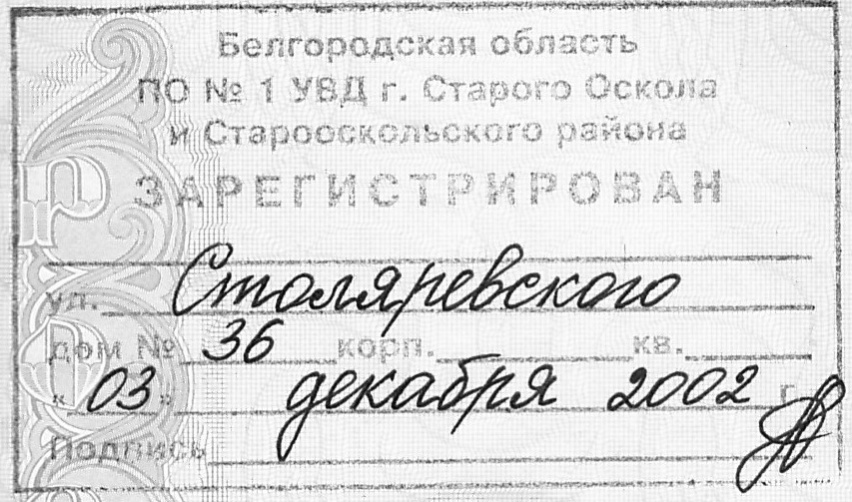 Белгородская область
ПО № 1 УВД г. Старого Оскола
и Старооскольского района
ЗАРЕГИСТРИРОВАН
ул. Столяревского
дом № 36 корп. кв.
«03» декабря 2002 г.
Подпись